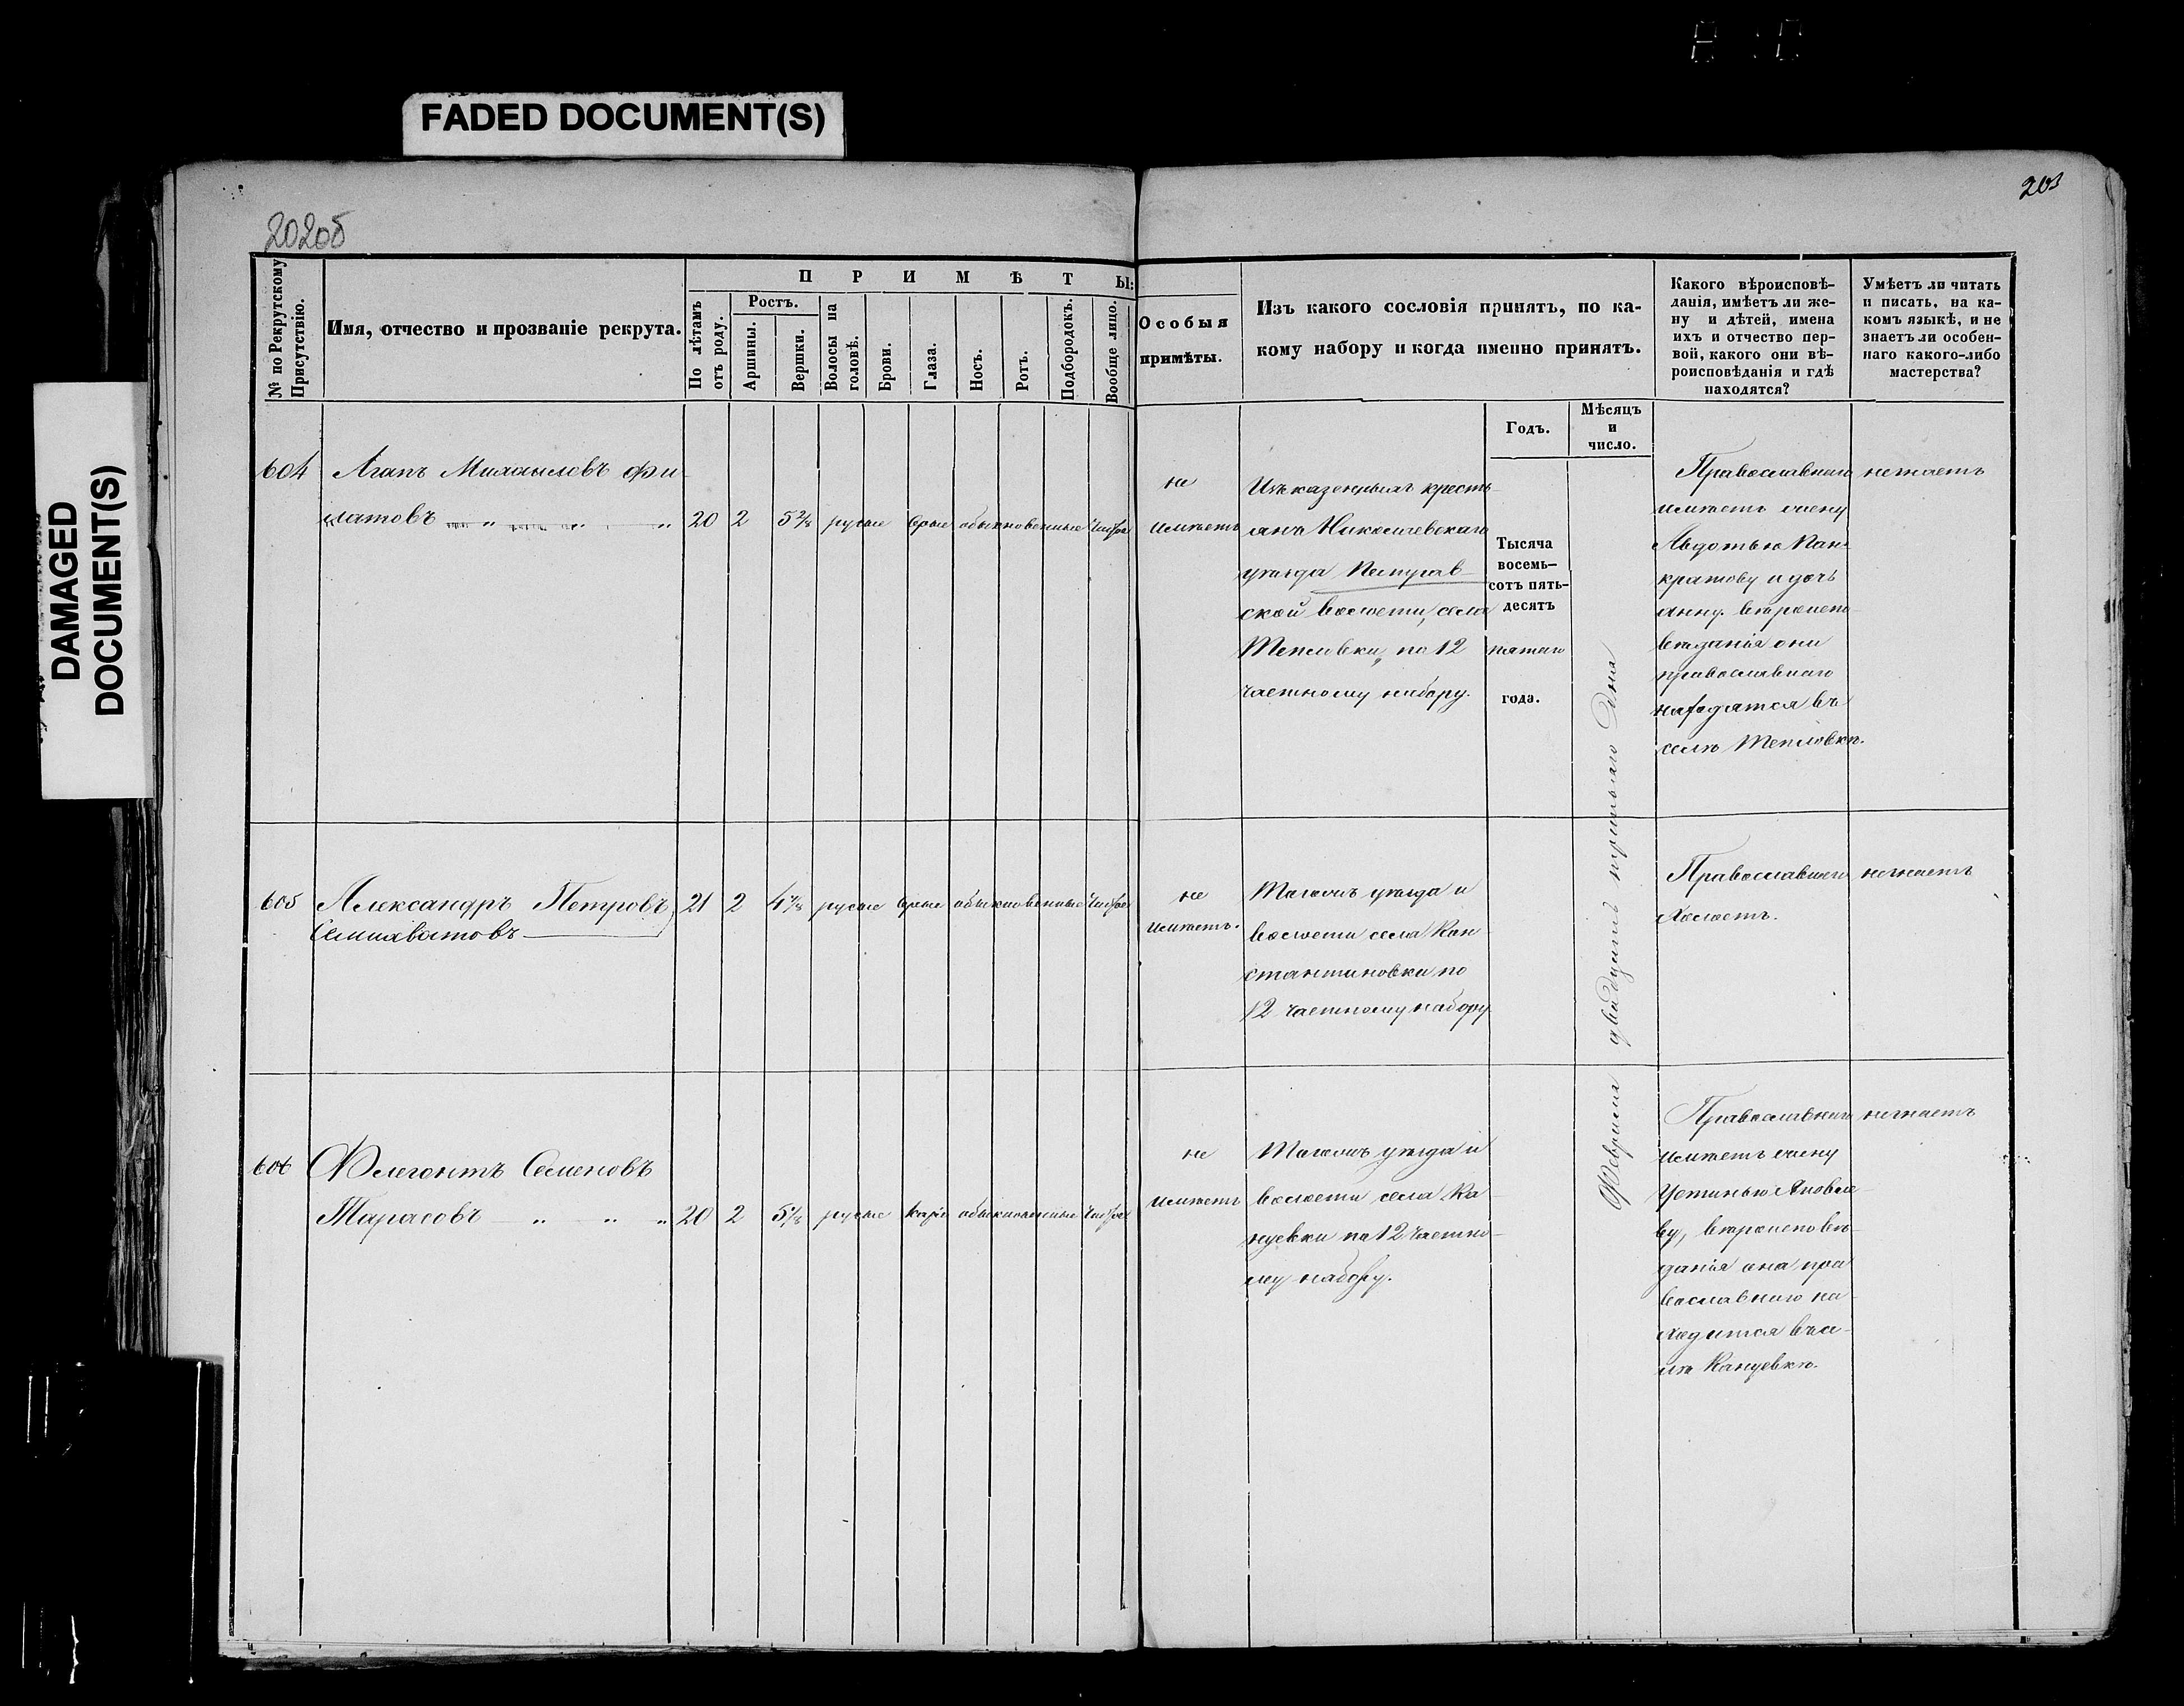 FADED DOCUMENT(S)
DAMAGED
DOCUMENT(S)
202об
203
№ по Рекрутскому
Присутствію.
Имя, отчество и прозваніе рекрута.
ПРИМѢТЫ:
По лѣтамъ
отъ роду.
Ростъ.
Аршины.
Вершки.
Волосы на
головѣ.
Брови.
Глаза.
Носъ.
Ротъ.
Подбородокъ.
Вообще лицо.
Особыя
примѣты.
Изъ какого сословія принятъ, по ка-
кому набору и когда именно принятъ.
Годъ.
Мѣсяцъ
и
число.
Какого вѣроисповѣ-
данія, имѣетъ ли же-
ну и дѣтей, имена
ихъ и отчество пер-
вой, какого они вѣ-
роисповѣданія и гдѣ
находятся?
Умѣетъ ли читать
и писать, на ка-
комъ языкѣ, и не
знаетъ ли особен-
наго какого-либо
мастерства?
604
Агапъ Михайловъ Фи-
латовъ
20 2 5 2/8 русые серые обыкновенные чистое
не
имѣетъ
Изъ казенныхъ кресть-
янъ Николаевскаго
уѣзда Пестрав-
ской волости, села
Тепловки, по 12
частному набору.
Тысяча
восемь-
сотъ пять-
десятъ
пятаго
года.
Февраля двадцать третьяго дня
Православнаго
имѣетъ жену
Авдотью Пан-
кратову и дочь
Анну. вѣроиспо-
вѣданія они
православнаго
находятся въ
селѣ Тепловкѣ.
незнаетъ
605
Александръ Петровъ
Селиватовъ
21 2 4 7/8 русые серые обыкновенные чистое
не
имѣетъ.
Тогожъ уѣзда и
волости села Кон
стантиновки по
12 частному набору
Православнаго
Холостъ.
незнаетъ
606
Флегонтъ Семеновъ
Тарасовъ
20 2 5 1/8 русые каріе обыкновенные чистое
не
имѣетъ
Тогожъ уѣзда и
волости села Ка-
нуевки по 12 частно-
му набору.
Православнаго
имѣетъ жену
Устинью Яковле-
ву, вѣроисповѣ-
данія она пра
вославнаго на-
ходится въ се-
лѣ Кануевкѣ.
незнаетъ